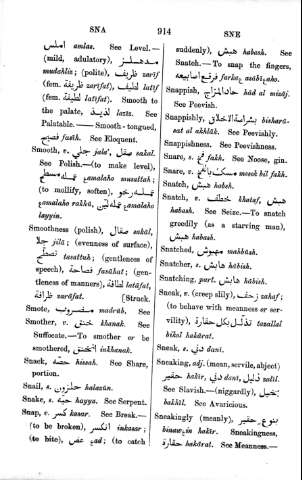 SNA 914 SNE
املس amlas. See Level.—
(mild, adulatory), مدهلس
mudahlis; (polite), ظريف zarîf
(fem. ظريفة zarîfat), لطيف latîf
(fem. لطيفة latîfat). Smooth to
the palate, لذيذ laziz. See
Palatable. — Smooth-tongued,
فصيح fasîh. See Eloquent.
Smooth, v. جلى jala', صقل sakal.
See Polish.—(to make level),
(to mollify, soften),
layyin.
Smoothness (polish), صقال sakâl,
جلا jilâ; (evenness of surface),
تسطح tasattuh; (gentleness of
speech), فصاحة fasâhat; (gen-
tleness of manners), لطافة latâfat,
ظرافة zarâfat. [Struck.
Smote, مضروب madrûb. See
Smother, v. خنق khanak. See
Suffocate.—To smother or be
smothered, اختنق inkhanak.
Snack, حصة hissah. See Share,
portion.
Snail, s. حلزون halazûn.
Snake, s. حية hayya. See Serpent.
Snap, v. كسر kasar. See Break.—
(to be broken), انكسر inkasar;
(to bite), عض ad; (to catch
suddenly), هبش habash. See
Snatch.—To snap the fingers,
فرقع اصابيعه
Snappish, حاد المزاج hâd al mizâj.
See Peevish.
Snappishly, بشراسة الاخلاق bisharâ-
sat al akhlâk. See Peevishly.
Snappishness. See Peevishness.
Snare, s. فخ fakh. See Noose, gin.
Snare, v. مسك بالفخ mesek bil fakh.
Snatch, هبش habsh.
Snatch, v. خطف khataf, هبش
habash. See Seize.—To snatch
greedily (as a starving man),
هبش habash.
Snatched, مهبوش mahbûsh.
Snatcher, s. هابش hâbish.
Snatching, part. هابش hâbish.
Sneak, v. (creep slily), زحف zahaf;
(to behave with meanness or ser-
vility), تذلل بكل حقارة tazallal
bikol hakârat.
Sneak, s. دني danî.
Sneaking, adj. (mean, servile, abject)
حقير hakîr, دني danî, ذليل zalîl.
See Slavish.—(niggardly), بخيل
bakhîl. See Avaricious.
Sneakingly (meanly), بنوع حقير
binaw-in hakîr. Sneakingness,
حقارة hakârat. See Meanness.—